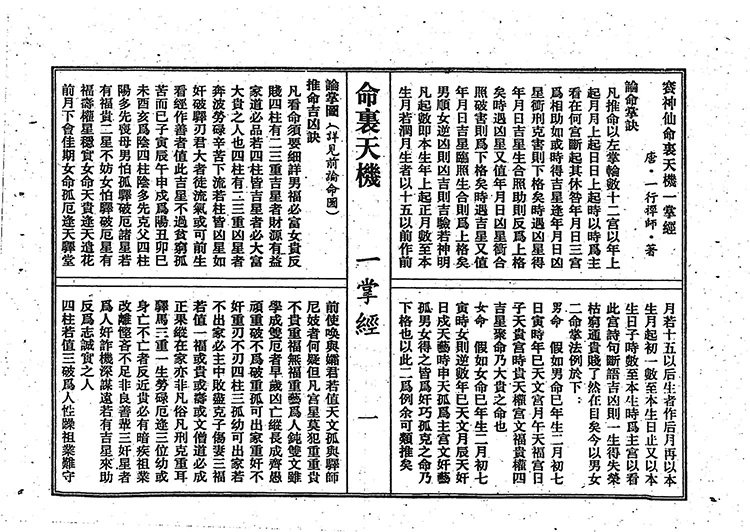 賽神仙命裏天機一掌經
唐·一行禪師·著
論命掌訣
凡推命以左掌輪數十二宮以年上
起月月上起日日上起時以時爲主
看在何宮斷起其休咎年月日三宮
爲相助如或時得吉星逢年月日凶
星衝刑克害則下格矣時逢凶星得
年月日吉星生合照助則反爲上格
矣時遇凶星又值年月日凶星衝合
照破害則爲下格矣時遇吉星又值
年月日吉星臨照生合則爲上格矣
男順女逆凶則凶吉則吉驗若神明
凡起數即本生年上起正月數至本
生月若潤月生者以十五以前作前
月若十五以后生者作后月再以本
生月起初一數至本生日止又以本
生日子時數至本生時爲主宮以看
此宮詩句斷語吉凶則一生得失榮
枯窮通貴賤了然在目矣今以男女
二命掌法例於下：
男命　假如男命巳年生二月初七
日寅時年巳天文宮月午天福宮日
子天貴宮時貴天權宮文福貴權四
吉星聚命乃大貴之命也
女命　假如女命巳年生二月初七
寅時女則逆數年巳天文月辰天奸
日戌天藝時申天孤日主宮文奸藝
孤男女得之皆爲奸巧孤克之命乃
下格也以此二爲例余可類推矣
命裏天機　一掌經　一
論掌圖（詳見前論命圖）
推命吉凶訣
凡看命須要細詳男福必富女貴反
賤四柱有二三重吉星者財源有益
家道必品若四柱皆吉星者必大富
大貴之人也四柱有二三重凶星者
奔波勞碌辛苦下流若柱皆凶星如
奸破驛刃君大者徙流氣或可前生
看經作善者值此吉星不過貧窮孤
苦而已子寅辰午申戌爲陽丑卯巳
未酉亥爲陰四柱陰多先克父四柱
陽多先喪母男怕孤驛破厄諸星若
有福貴二星不妨女怕驛破厄星有
福壽權星穩實女命天貴逢天遣花
前月下會佳期女命孤厄逢天驛堂
前使喚與孀君若值天文孤與驛師
尼妓者何疑但凡宮星莫犯重重貴
不貴重福無福重藝爲人鈍雙文雖
學成雙厄者早歲凶亡縱長成齊愚
頑重破不爲破重孤可出家重奸不
奸重刃不刃四柱三孤幼可出家若
不出家必主中敗盡克子傷妻三福
若值一福或貴或壽或文僧道必成
正果縱在家亦非凡俗凡刑克重耳
驛馬三重一生勞碌厄逢三位幼或
身亡不亡者反近貴必有暗疾祖業
改離慳吝不足非良善輩三奸星者
爲人奸詐機深謀遠若有吉星來助
反爲志誠實之人
四柱若值三破爲人性躁祖業難守